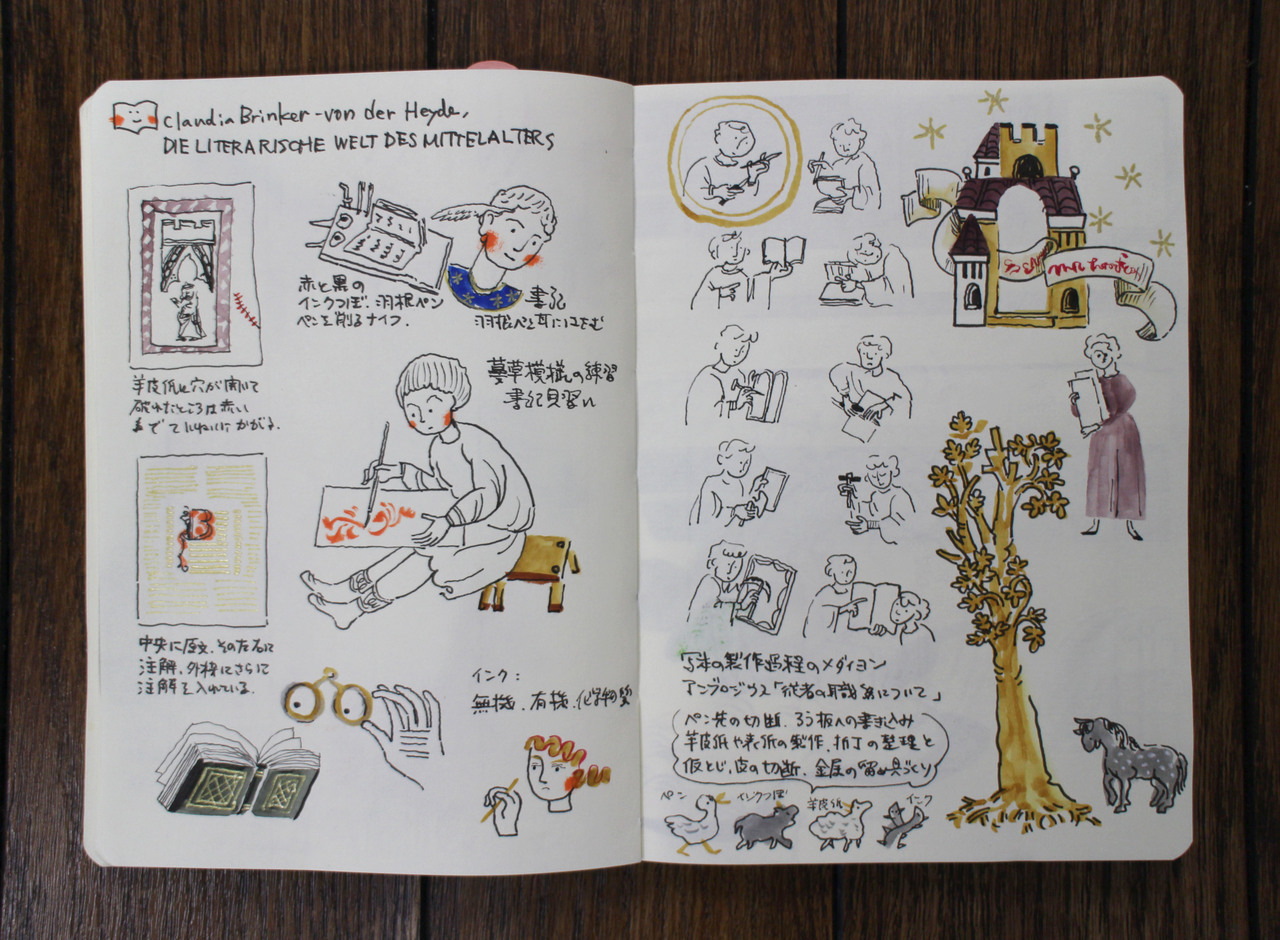 Claudia Brinker-von der Heyde,
DIE LITERARISCHE WELT DES MITTELALTERS
赤と黒の
インクつぼ、羽根ペン
ペンを削るナイフ.
書記
羽根ペン耳にはさむ
羊皮紙に穴が開いて
破れたところは赤い
糸でていねいにかがる.
蔓草模様の練習
書記見習い
B
中央に原文、その左右に
注解、外格にさらに
注解を入れている.
インク:
無機、有機、化学物質
写本の製作過程のメダイヨン
アンブロジウス「従者の職務について」
ペン先の切断、ろう板への書き込み
羊皮紙や表紙の製作、折丁の整理と
仮とじ、皮の切断、金属の留め具づくり
ペン
インクつぼ
羊皮紙
インク